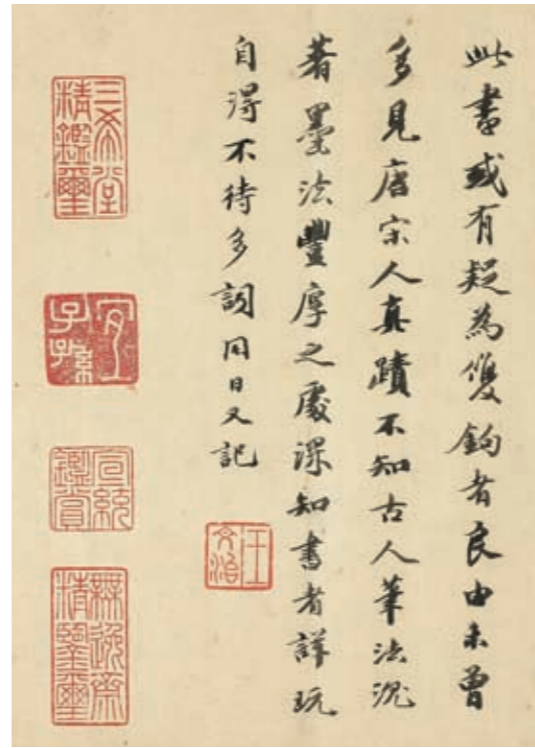 此書或有疑為雙鉤者良由未曾
多見唐宋人真蹟不知古人筆法沉
著墨法豐厚之處深知書者詳玩
自得不待多詞同日又記
王文治
三希堂精鑑璽
宜子孫
宣統鑑賞
無逸齋精鑒璽